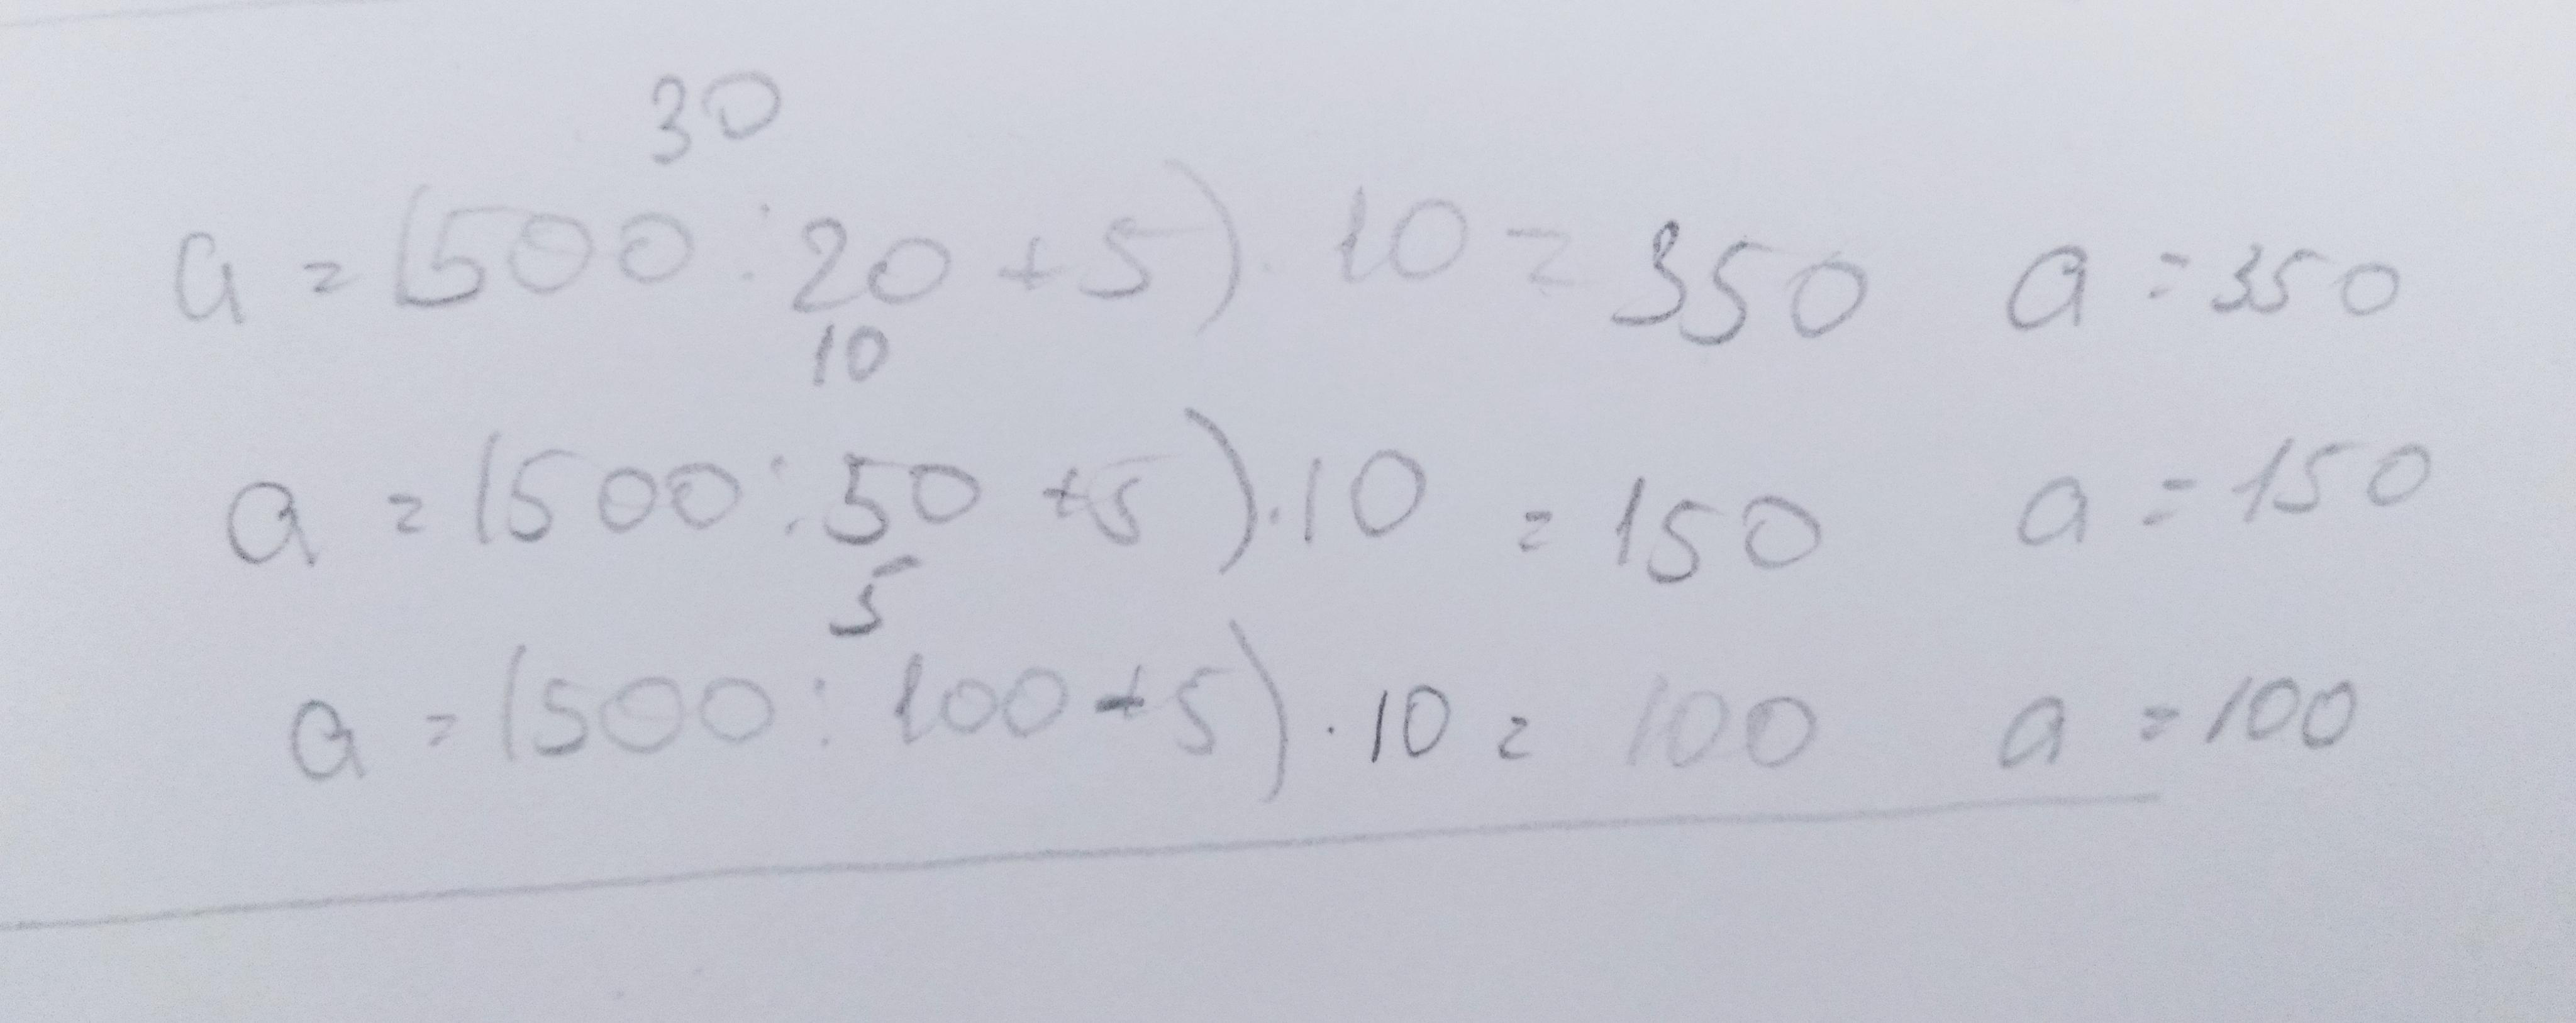 30
a = (500 : 20 + 5) · 10 = 350 a = 350
10
a = (500 : 50 + 5) · 10 = 150 a = 150
5
a = (500 : 100 + 5) · 10 = 100 a = 100